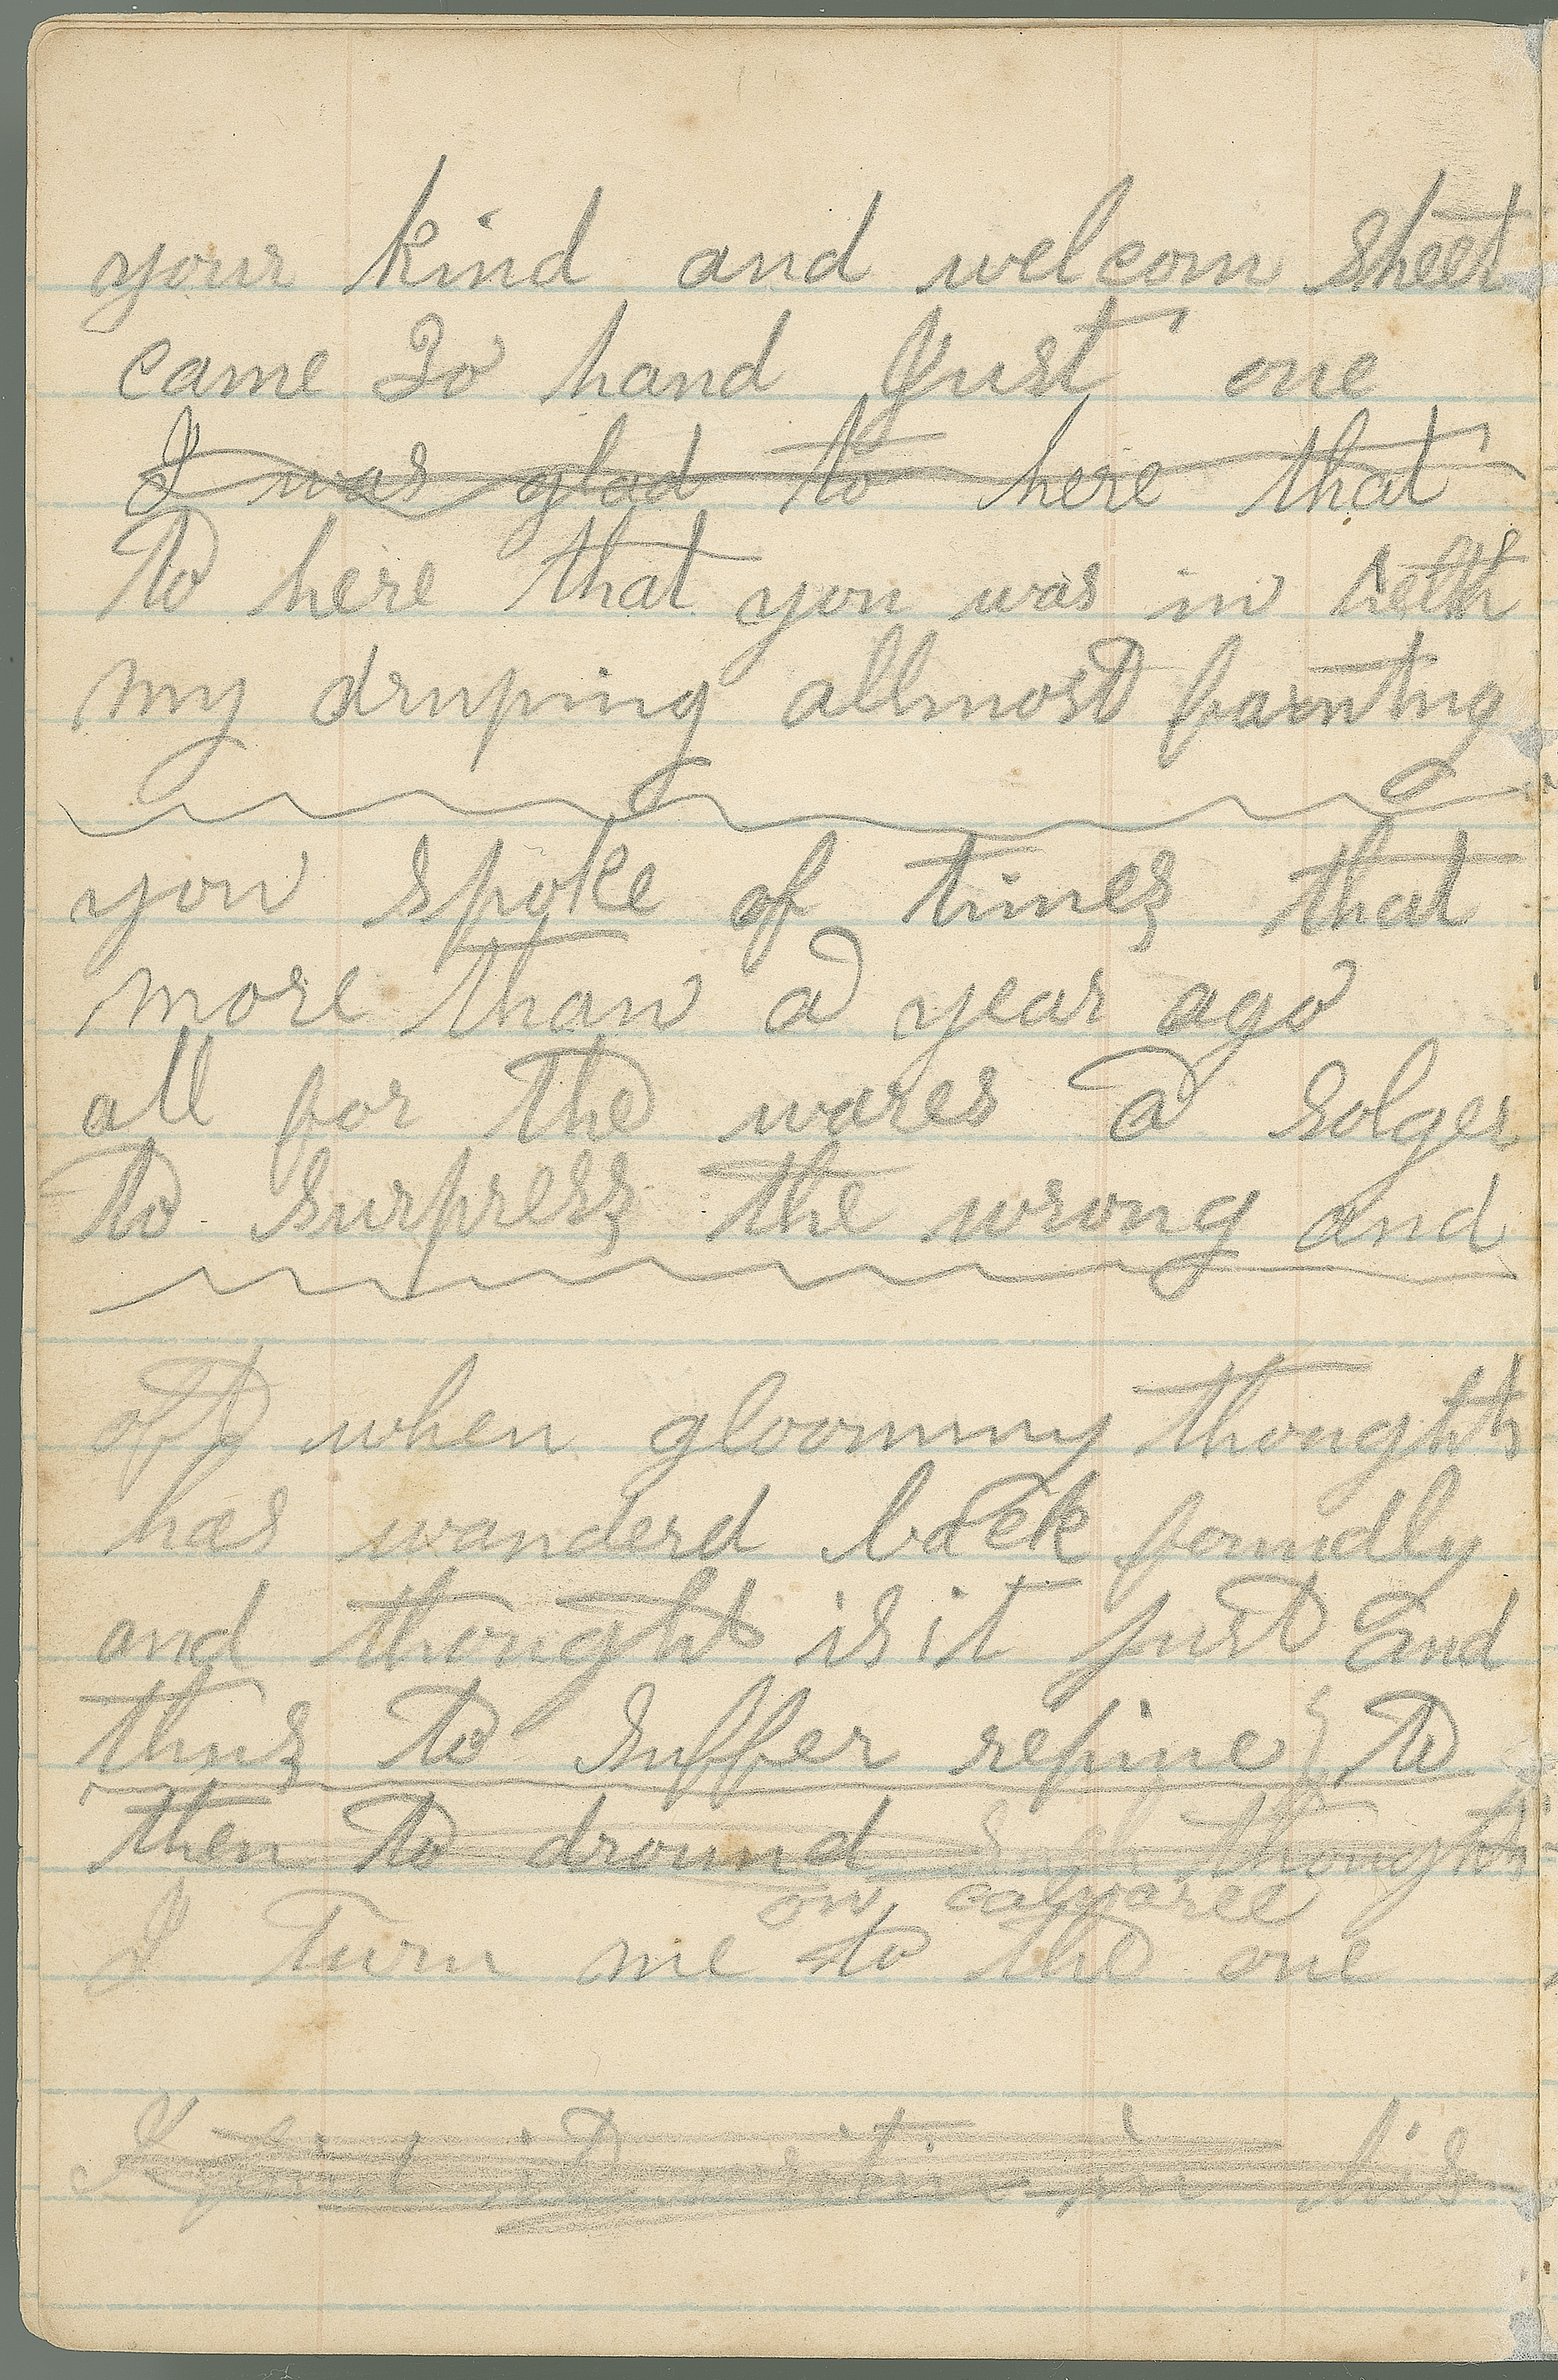 your kind and welcom sheet
came To hand Just one
I was glad to here that
To here that you was in helth
my druping allmost fainting
you spoke of times that
more than a year ago
all for the wares a solger
to surpress the wrong and
oft when gloommy thoughts
has wanderd back foundly
and thought is it just and
thus to suffer repine to
then to dround such thoughts
on calvaree
I Turn me to the one
I find it writine in his